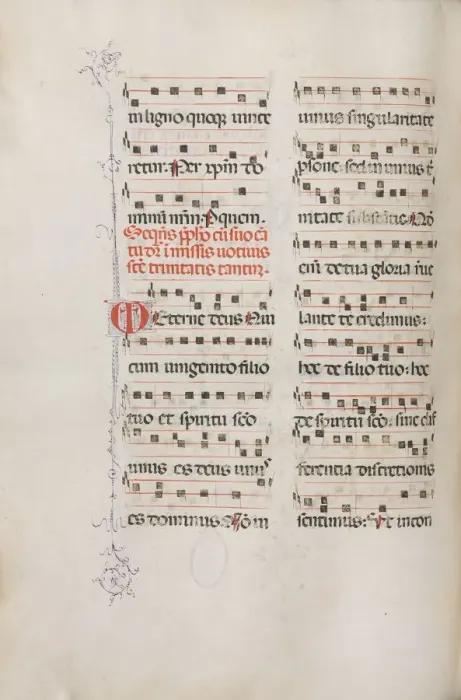 in ligno quoq; vince
retur. Per xp̄m dn̄
minū nr̄m. P quem.
Seqn̄s p̄fho cū suo cā
tu dr̄ ī missis uotiuis
sc̄e trinitatis cantur.
Eterne deus Qui
cum unigenito filio
tuo et spiritu sc̄o
unus es deus unus
es dominus Nō in
unius singularitate
p̄sone: sed in unius t̄
nitate substātie. Nō
enī de tua gloria rue
lante te credimus:
hoc de filio tuo: hoc
de spiritu sc̄o: sine dif
ferentia discretionis
sentimus: Vt incon